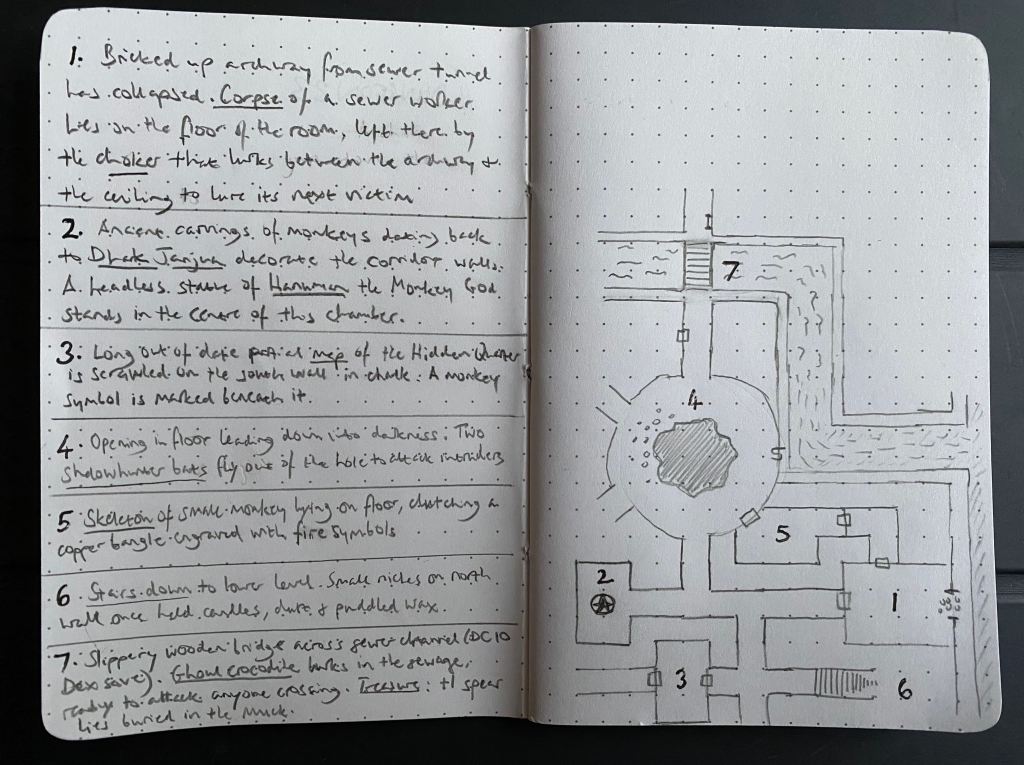 1. Bricked up archway from sewer tunnel
has collapsed. Corpse of a sewer worker
lies on the floor of the room, left there by
the choker that lurks between the archway &
the ceiling to lure its next victim
2. Ancient carvings of monkeys dating back
to Dhak Janjua decorate the corridor walls.
A headless statue of Hanuman the Monkey God
stands in the centre of this chamber.
3. Long out of date partial map of the Hidden Quarter
is scrawled on the south wall in chalk. A monkey
symbol is marked beneath it.
4. Opening in floor leading down into darkness. Two
shadowhunter bats fly out of the hole to attack intruders
5 Skeleton of small monkey lying on floor, clutching a
copper bangle engraved with fire symbols
6 Stairs down to lower level. Small niches on north
wall once held candles, dust & puddled wax.
7. Slippery wooden bridge across sewer channel (DC10
Dex save). Ghoul crocodile lurks in the sewage,
ready to attack anyone crossing. Treasure: +1 spear
lies buried in the muck.
7
4
S
5
2
1
3
6